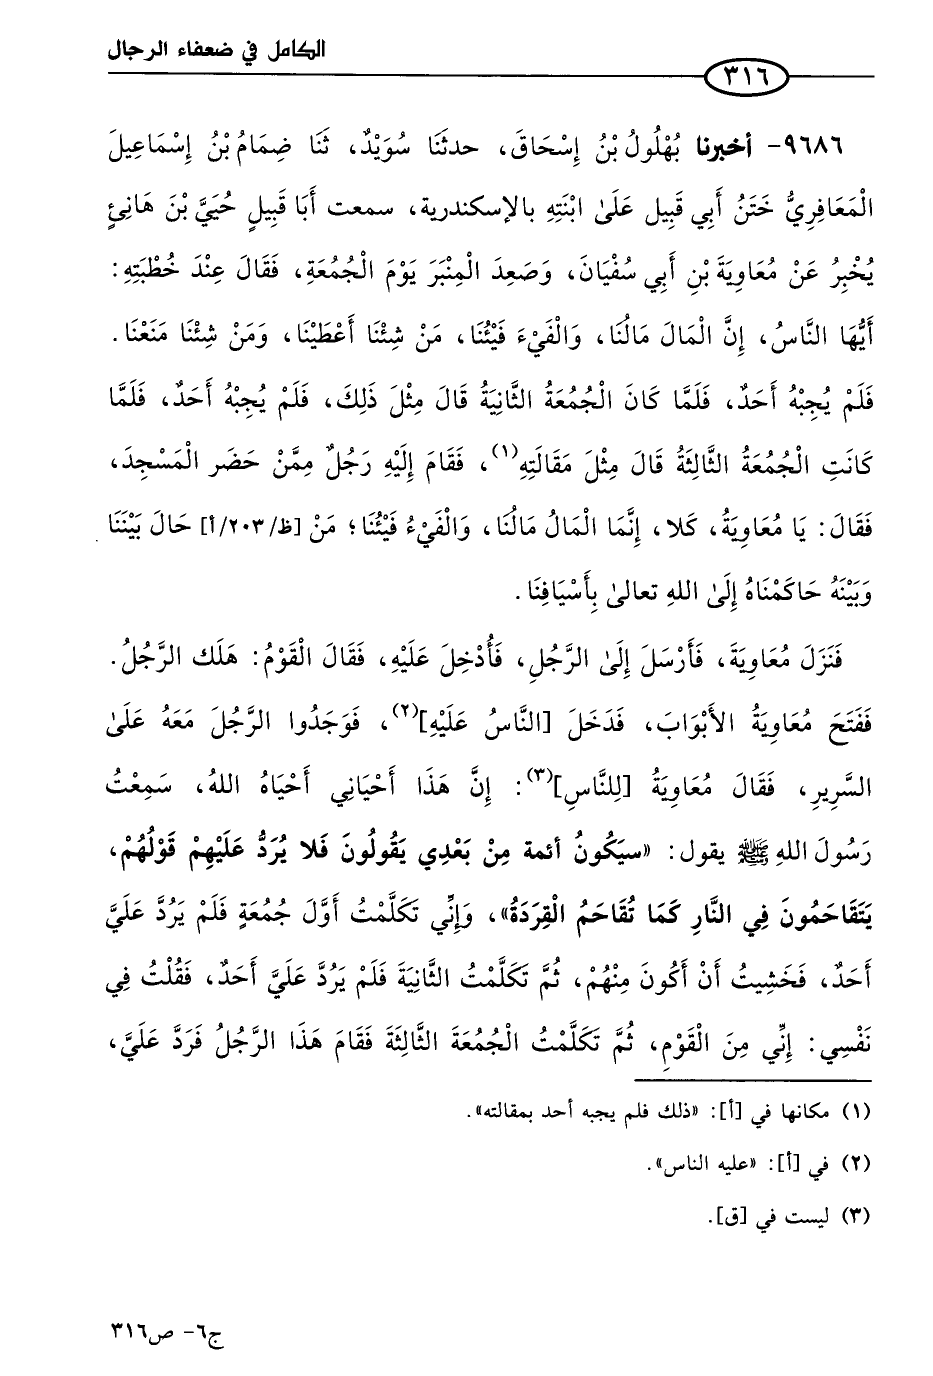 الكامل في ضعفاء الرجال
٣١٦
٩٦٨٦- أخبرنا بُهْلُولُ بْنُ إِسْحَاقَ، حدثَنَا سُوَيْدٌ، ثَنَا ضِمَامُ بْنُ إِسْمَاعِيلَ
الْمَعَافِرِيُّ خَتَنُ أَبِي قَبِيل عَلَىٰ ابْنَتِهِ بالإسكندرية، سمعت أَبَا قَبِيلٍ حُيَيَّ بْنَ هَانِئٍ
يُخْبِرُ عَنْ مُعَاوِيَةَ بْنِ أَبِي سُفْيَانَ، وَصَعِدَ الْمِنْبَرَ يَوْمَ الْجُمُعَةِ، فَقَالَ عِنْدَ خُطْبَتِهِ:
أَيُّهَا النَّاسُ، إِنَّ الْمَالَ مَالُنَا، وَالْفَيْءَ فَيْئُنَا، مَنْ شِئْنَا أَعْطَيْنَا، وَمَنْ شِئْنَا مَنَعْنَا.
فَلَمْ يُجِبْهُ أَحَدٌ، فَلَمَّا كَانَ الْجُمُعَةُ الثَّانِيَةُ قَالَ مِثْلَ ذَلِكَ، فَلَمْ يُجِبْهُ أَحَدٌ، فَلَمَّا
كَانَتِ الْجُمُعَةُ الثَّالِثَةُ قَالَ مِثْلَ مَقَالَتِهِ(١)، فَقَامَ إِلَيْهِ رَجُلٌ مِمَّنْ حَضَر الْمَسْجِدَ،
فَقَالَ: يَا مُعَاوِيَةُ، كَلا، إِنَّمَا الْمَالُ مَالُنَا، وَالْفَيْءُ فَيْئُنَا؛ مَنْ [ظ/٢٠٣/أ] حَالَ بَيْنَنَا
وَبَيْنَهُ حَاكَمْنَاهُ إِلَىٰ اللهِ تعالىٰ بِأَسْيَافِنَا.
فَنَزَلَ مُعَاوِيَةَ، فَأَرْسَلَ إِلَىٰ الرَّجُلِ، فَأُدْخِلَ عَلَيْهِ، فَقَالَ الْقَوْمُ: هَلَك الرَّجُلُ.
فَفَتَحَ مُعَاوِيَةُ الأَبْوَابَ، فَدَخَلَ [النَّاسُ عَلَيْهِ](٢)، فَوَجَدُوا الرَّجُلَ مَعَهُ عَلَىٰ
السَّرِيرِ، فَقَالَ مُعَاوِيَةُ [لِلنَّاسِ](٣): إِنَّ هَذَا أَحْيَانِي أَحْيَاهُ اللهُ، سَمِعْتُ
رَسُولَ اللهِ ﷺ يقول: «سيَكُونُ أئمة مِنْ بَعْدِي يَقُولُونَ فَلا يُرَدُّ عَلَيْهِمْ قَوْلُهُمْ،
يَتَقَاحَمُونَ فِي النَّارِ كَمَا تُقَاحَمُ الْقِرَدَةُ»، وَإِنِّي تَكَلَّمْتُ أَوَّلَ جُمُعَةٍ فَلَمْ يَرُدَّ عَلَيَّ
أَحَدٌ، فَخَشِيتُ أَنْ أَكُونَ مِنْهُمْ، ثُمَّ تَكَلَّمْتُ الثَّانِيَةَ فَلَمْ يَرُدَّ عَلَيَّ أَحَدٌ، فَقُلْتُ فِي
نَفْسِي: إِنِّي مِنَ الْقَوْمِ، ثُمَّ تَكَلَّمْتُ الْجُمُعَةَ الثَّالِثَةَ فَقَامَ هَذَا الرَّجُلُ فَرَدَّ عَلَيَّ،
(١) مكانها في [أ]: «ذلك فلم يجبه أحد بمقالته».
(٢) في [أ]: «عليه الناس».
(٣) ليست في [ق].
ج٦- ص٣١٦